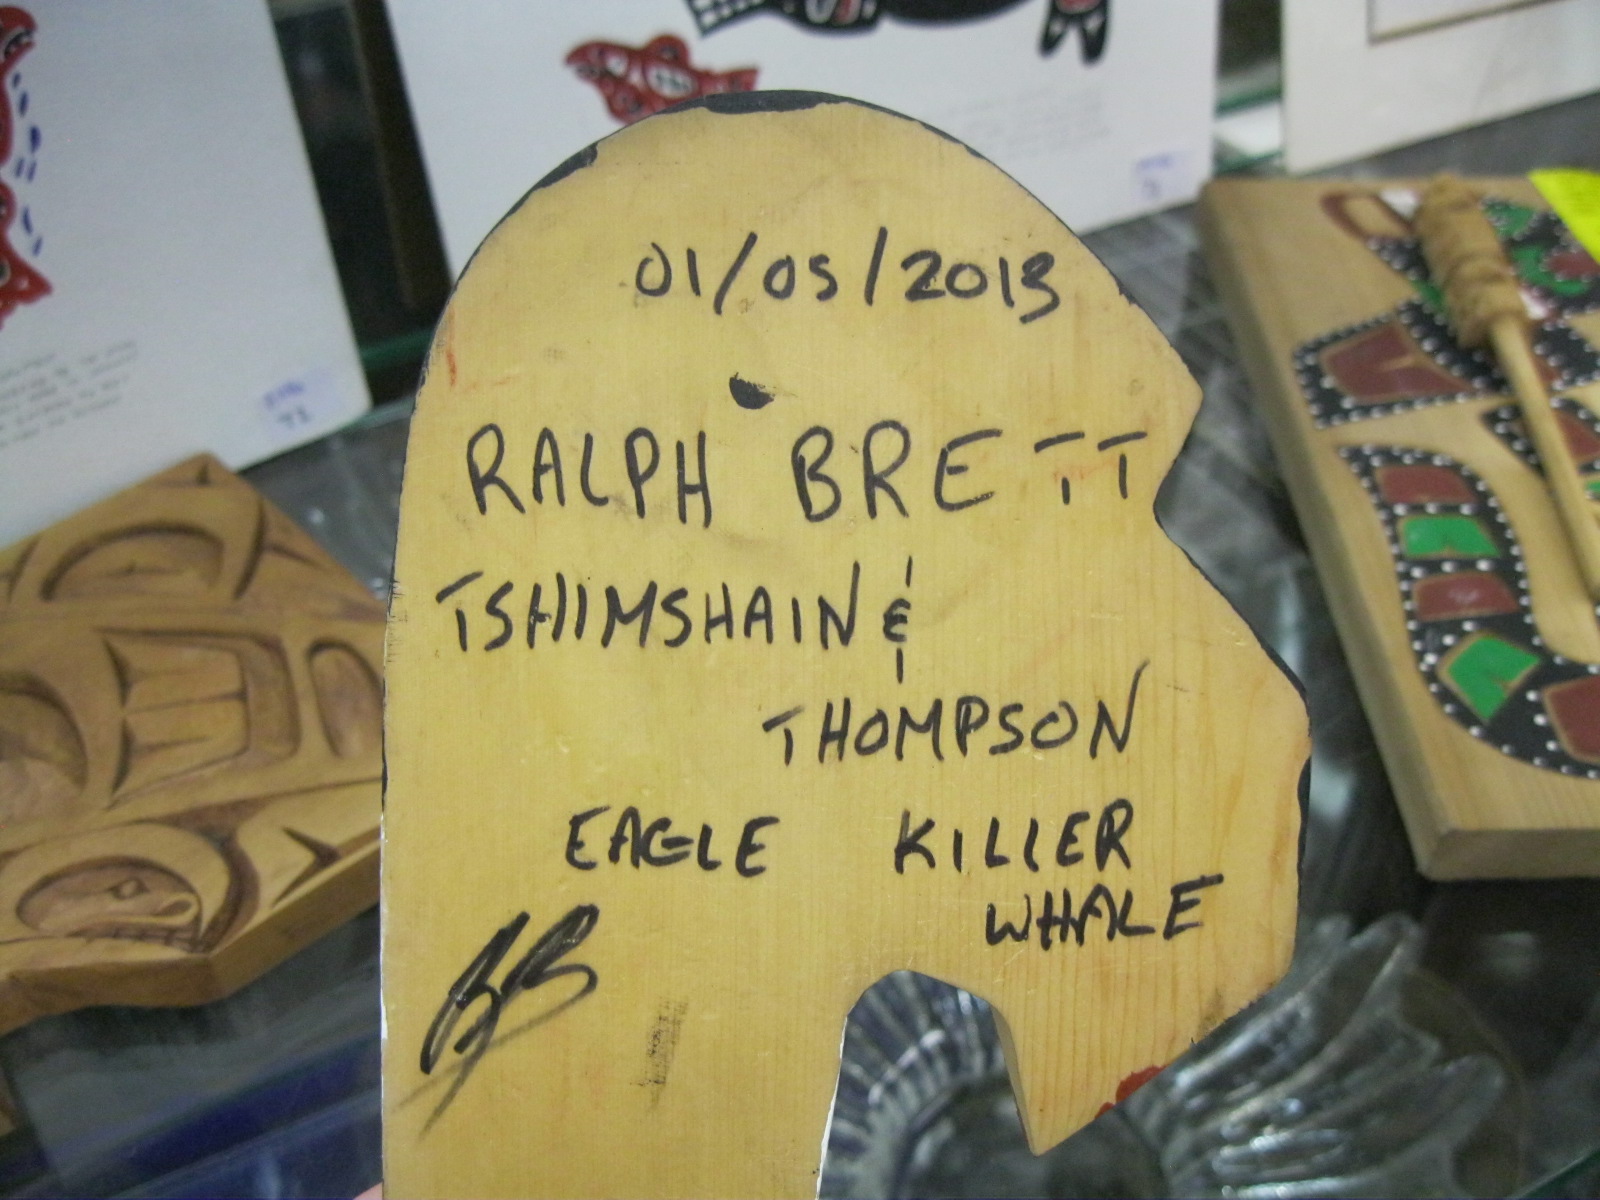 01/05/2013
RALPH BRETT
TSHIMSHAIN &
THOMPSON
EAGLE KILLER
WHALE